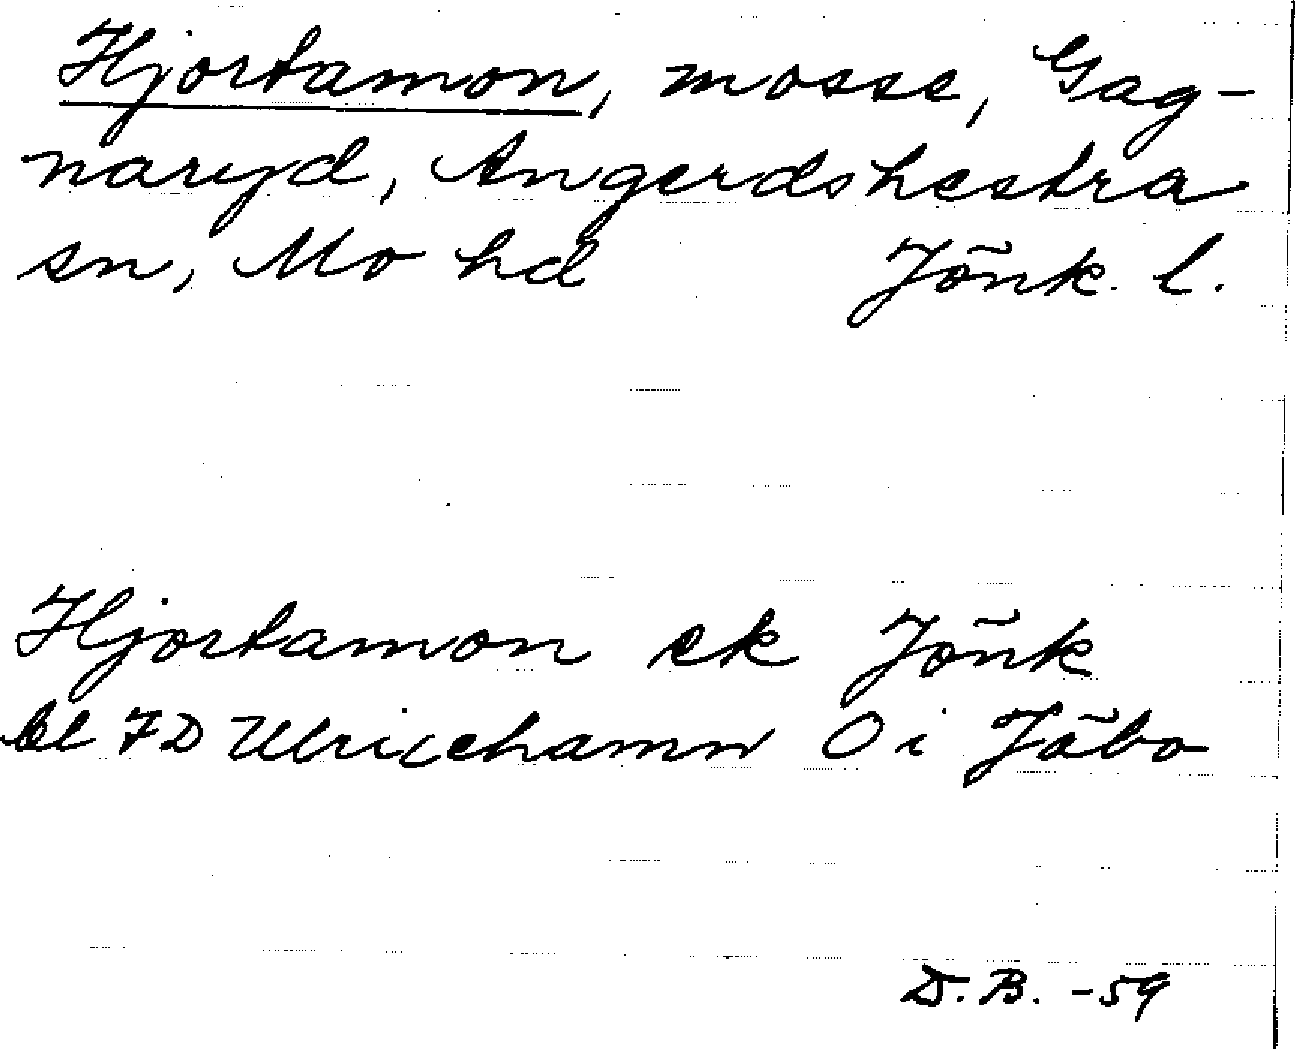 Hjortamon, mosse, Gag-
naryd, Angerdshestra
sn, Mo hd Jönk. l.
Hjortamon ek Jönk
bl 7D Ulricehamn O i Jäbo
D.B. -59